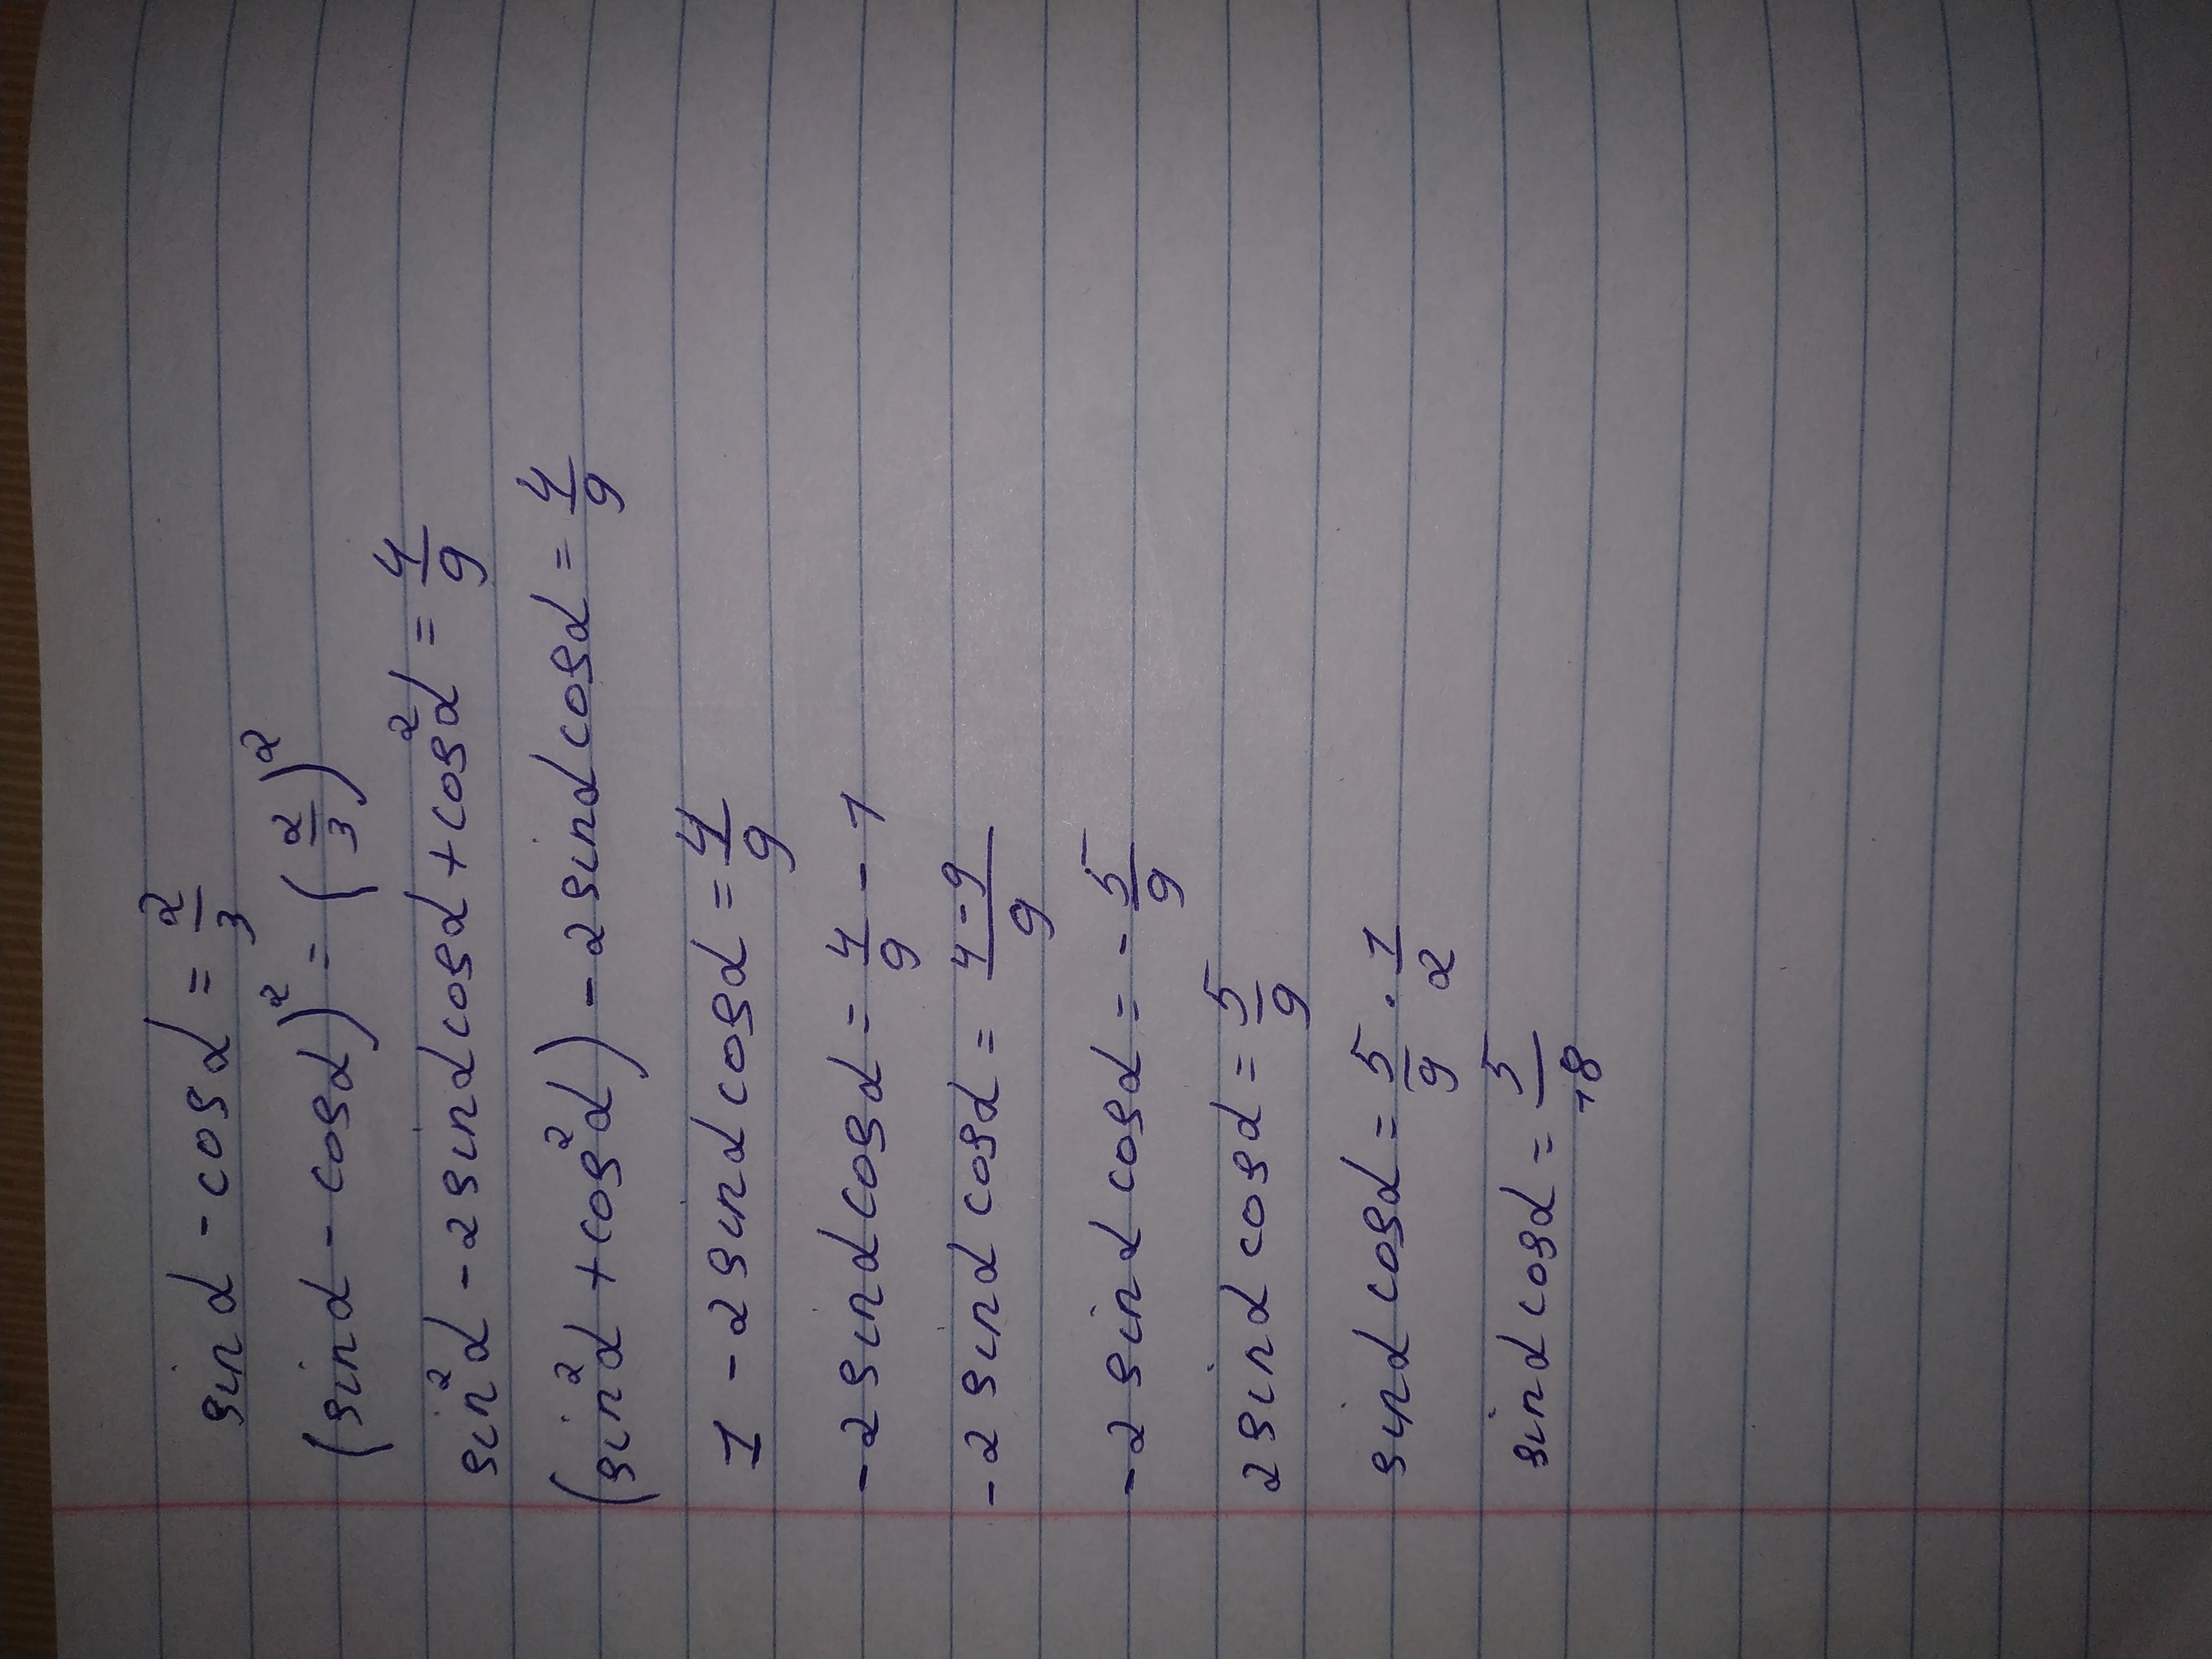 sinα - cosα = 2/3
(sinα - cosα)² = (2/3)²
sin²α - 2sinαcosα + cos²α = 4/9
(sin²α + cos²α) - 2sinαcosα = 4/9
1 - 2sinαcosα = 4/9
-2sinαcosα = 4/9 - 1
-2sinαcosα = (4-9)/9
-2sinαcosα = -5/9
2sinαcosα = 5/9
sinαcosα = 5/9 · 1/2
sinαcosα = 5/18